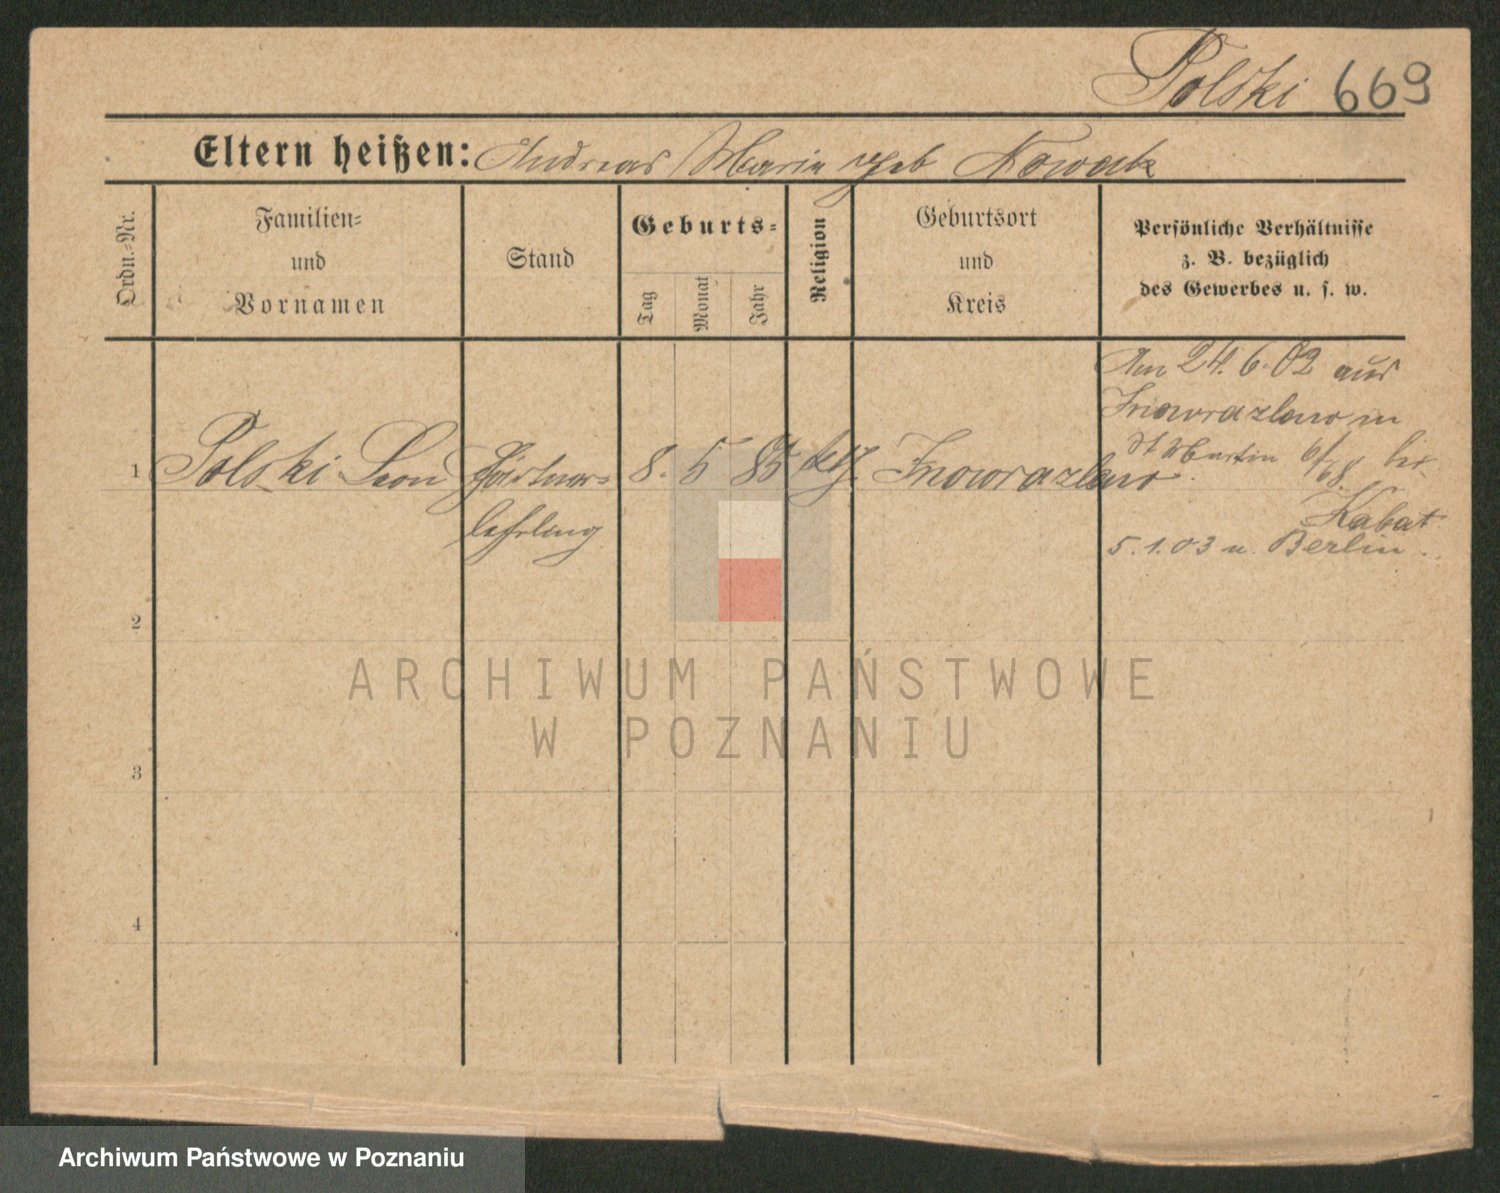 Polski 669
Eltern heißen: Andreas Maria geb Nowak
Ordn.=Nr.
Familien=
und
Vornamen
Stand
Geburts=
Tag
Monat
Jahr
Religion
Geburtsort
und
Kreis
Persönliche Verhältnisse
z. B. bezüglich
des Gewerbes u. s. w.
1
Polski Leon
Gärtner=
lehrling
8. 5 85
kath.
Inowrazlaw
Am 24. 6. 02 aus
Inowrazlaw in
St Martin bei
Kabat
5. 1. 03 n. Berlin.
2
3
4
ARCHIWUM PAŃSTWOWE
W POZNANIU
Archiwum Państwowe w Poznaniu